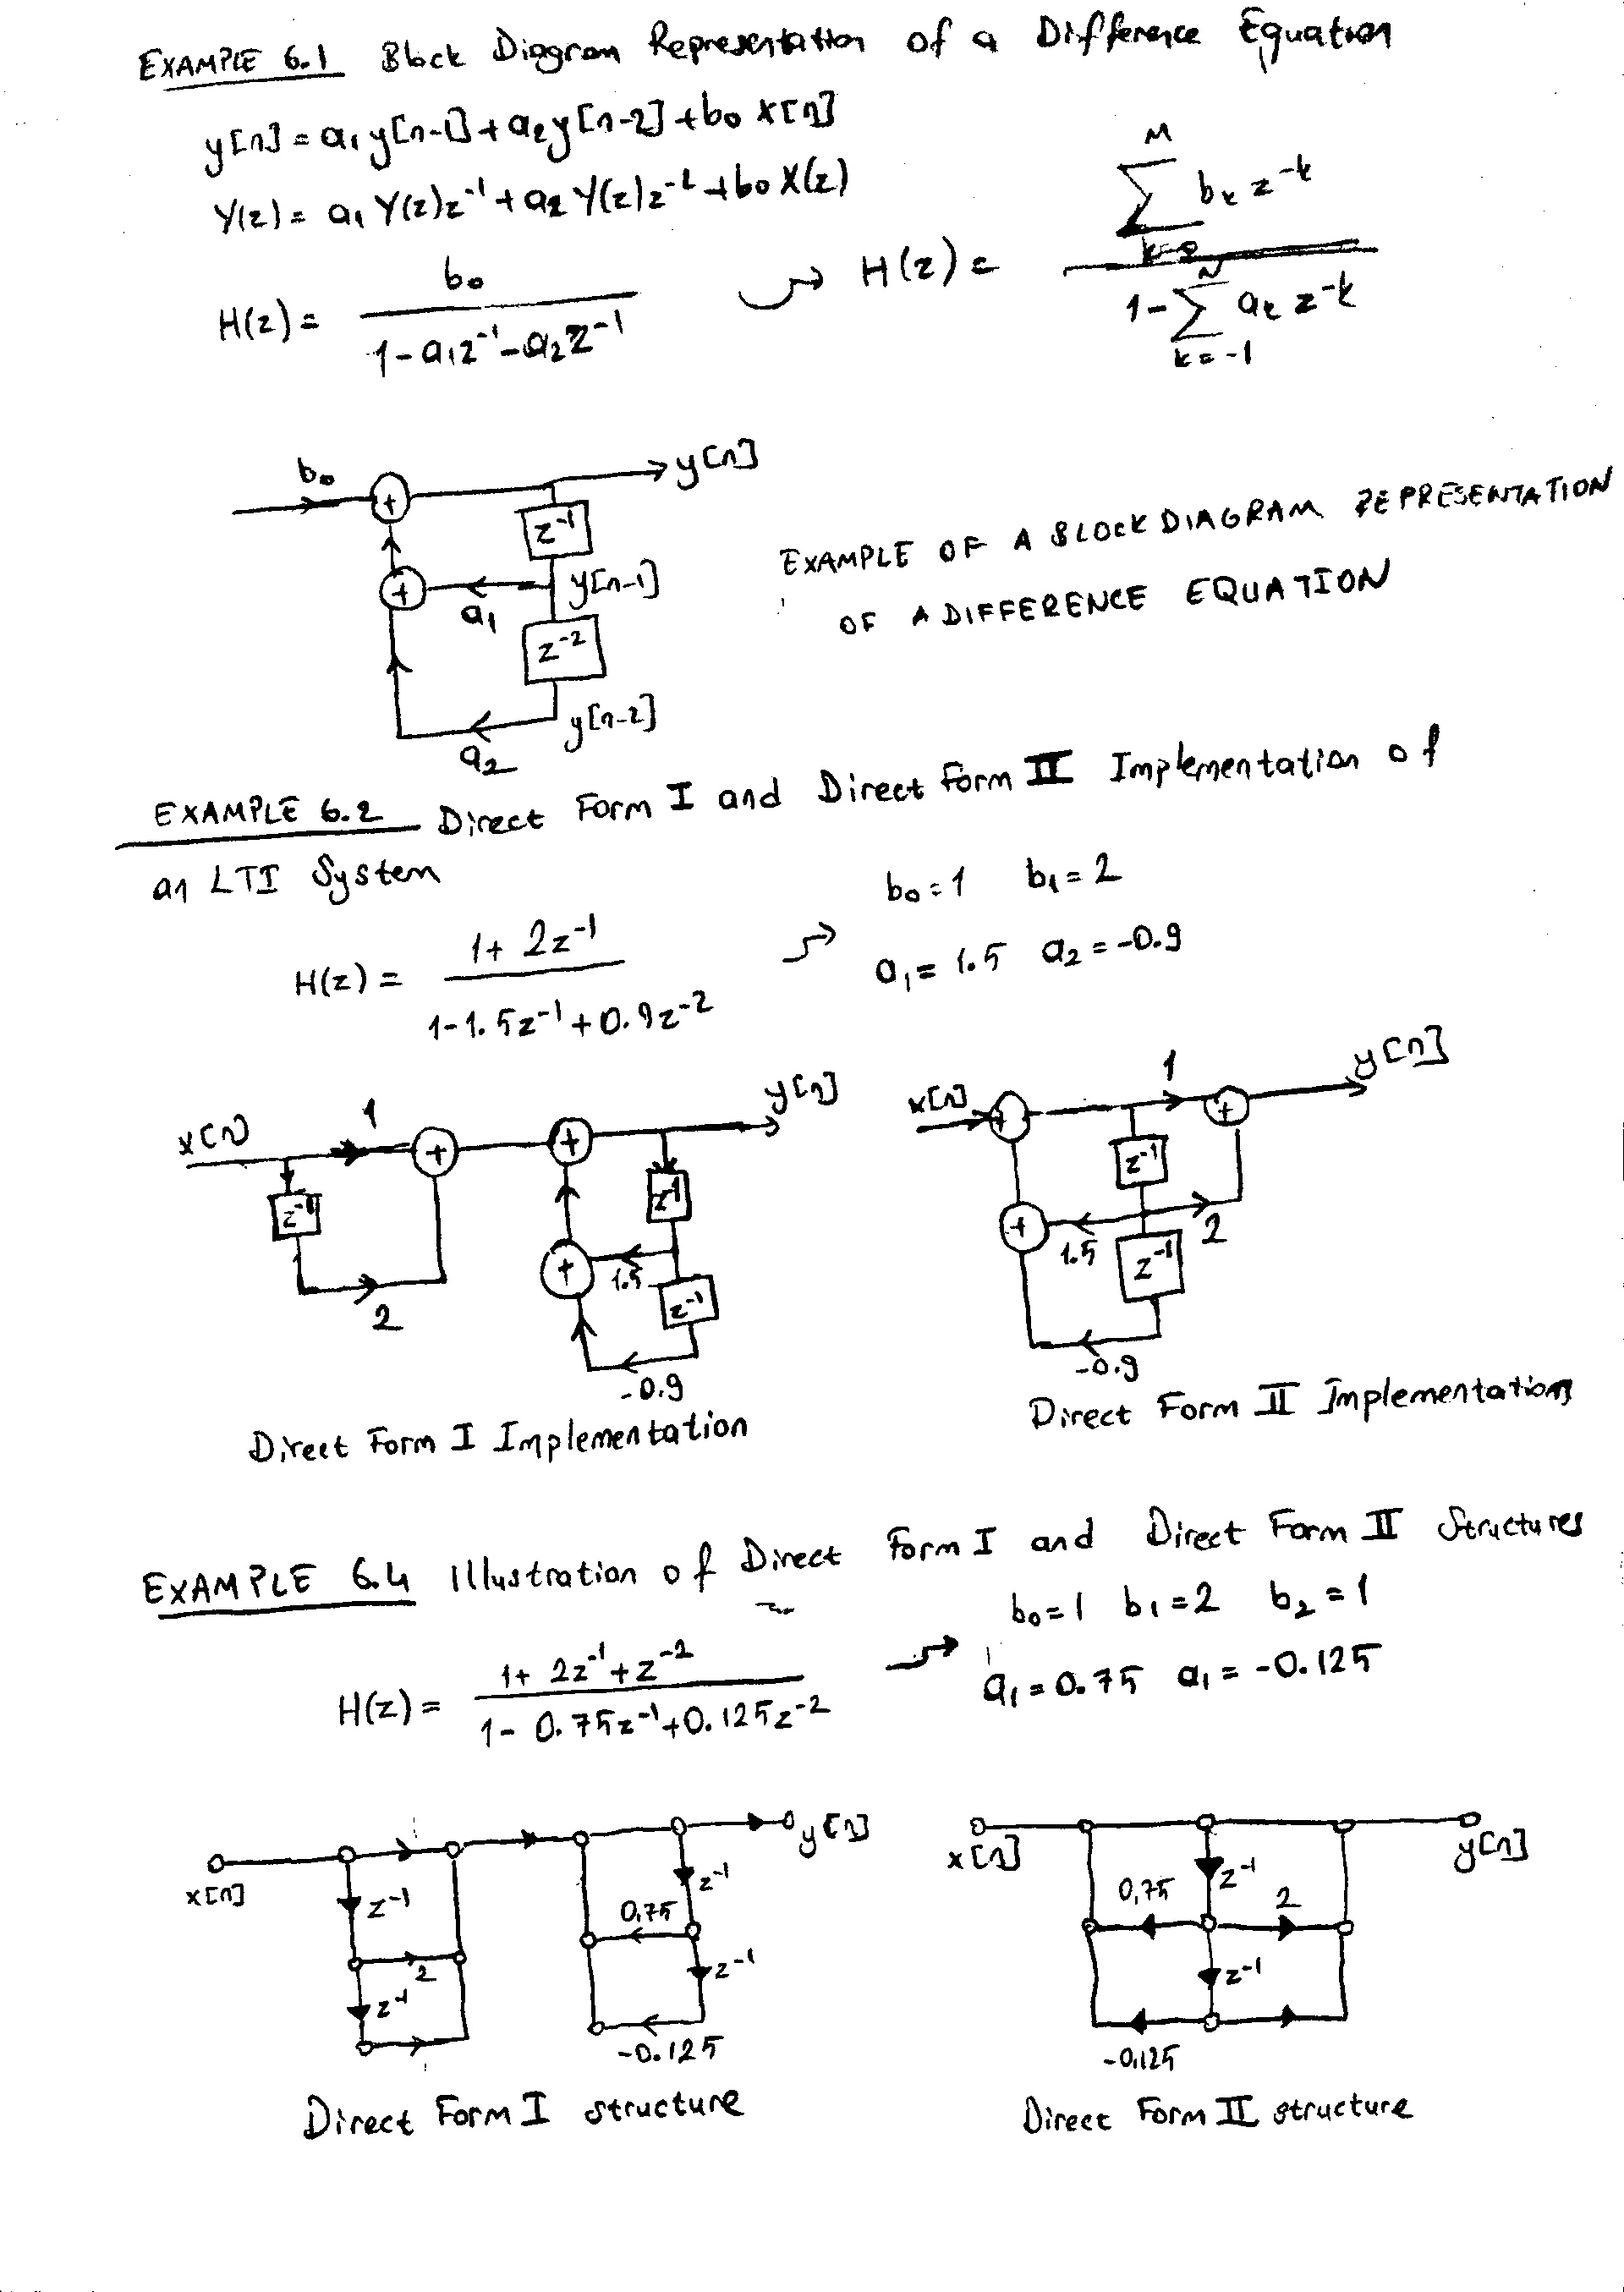 EXAMPLE 6.1 Block Diagram Representation of a Difference Equation
y[n] = a₁y[n-1] + a₂y[n-2] + b₀ x[n]
Y(z) = a₁ Y(z)z⁻¹ + a₂ Y(z)z⁻² + b₀ X(z)
H(z) = b₀ / (1 - a₁z⁻¹ - a₂z⁻¹)
H(z) = (M Σ k=0 bₖ z⁻ᵏ) / (1 - N Σ k=-1 aₖ z⁻ᵏ)
b₀ + y[n]
z⁻¹
+ a₁ y[n-1]
z⁻²
a₂ y[n-2]
EXAMPLE OF A BLOCK DIAGRAM REPRESENTATION
OF A DIFFERENCE EQUATION
EXAMPLE 6.2 Direct Form I and Direct Form II Implementation of
an LTI System
H(z) = (1 + 2z⁻¹) / (1 - 1.5z⁻¹ + 0.9z⁻²)
b₀ = 1 b₁ = 2
a₁ = 1.5 a₂ = -0.9
x[n] 1 + + y[n]
z⁻¹ z⁻¹
2 + 1.5 z⁻¹
-0.9
Direct Form I Implementation
x[n] + 1 + y[n]
z⁻¹
+ 1.5 2
z⁻¹
-0.9
Direct Form II Implementation
EXAMPLE 6.4 Illustration of Direct Form I and Direct Form II Structures
H(z) = (1 + 2z⁻¹ + z⁻²) / (1 - 0.75z⁻¹ + 0.125z⁻²)
b₀ = 1 b₁ = 2 b₂ = 1
a₁ = 0.75 a₁ = -0.125
x[n] y[n]
z⁻¹ z⁻¹
2 0,75
z⁻¹ z⁻¹
-0.125
Direct Form I structure
x[n] y[n]
z⁻¹
0,75 2
z⁻¹
-0,125
Direct Form II structure